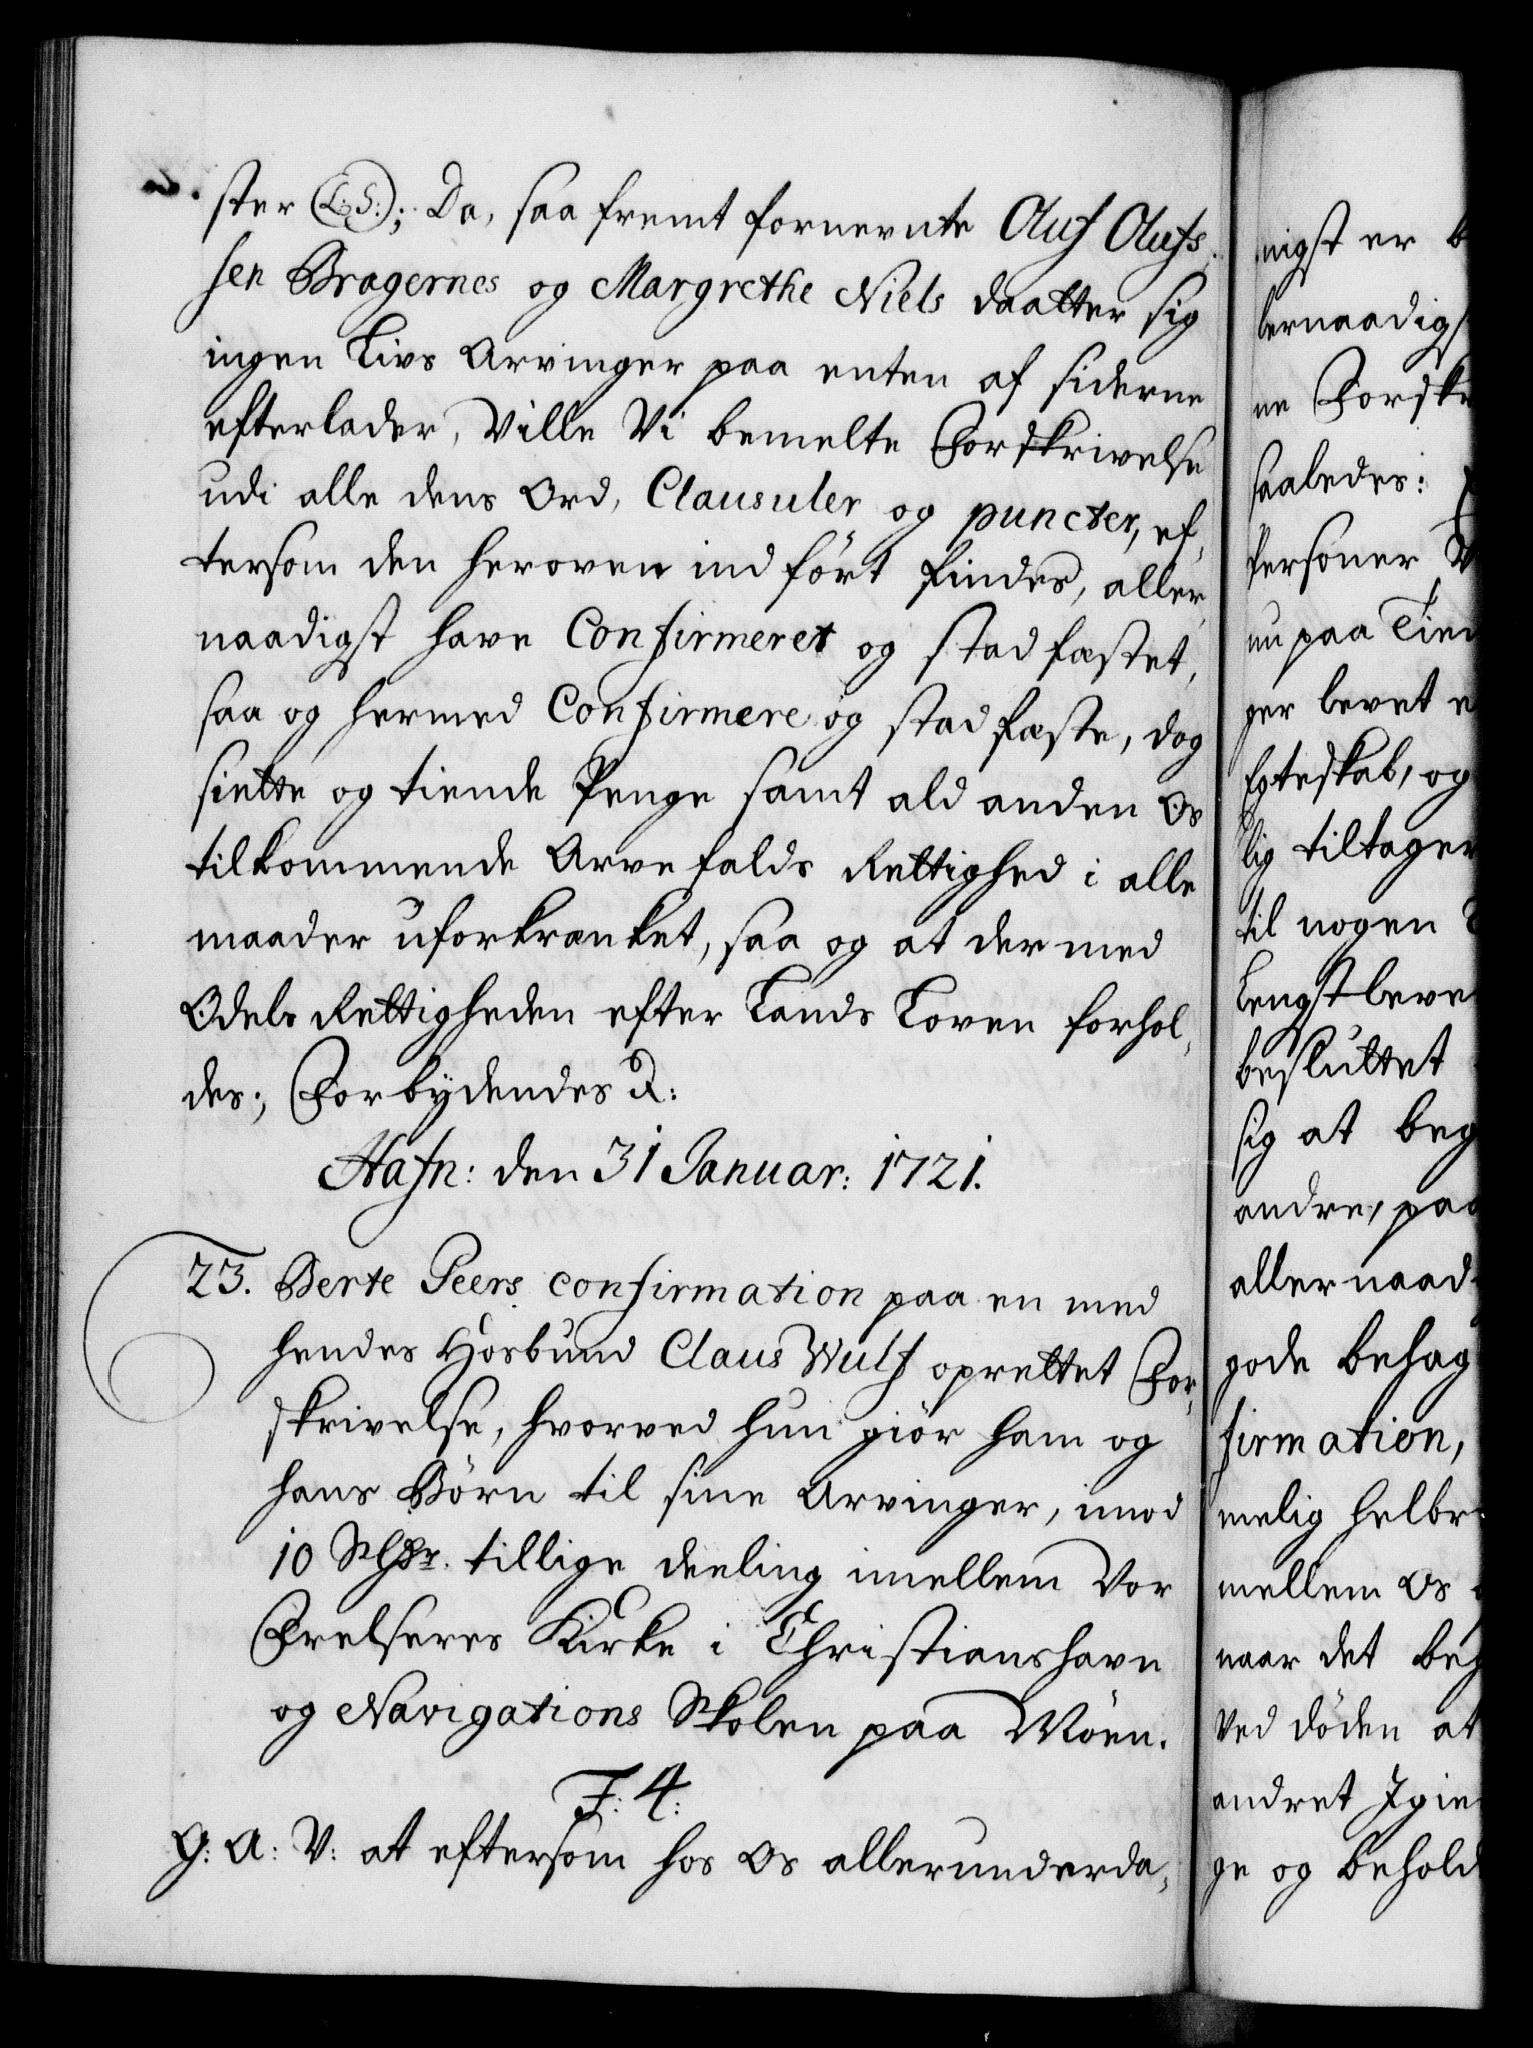 ster (L:S:); Da, saa fremt fornevnte Oluf Olufs,
sen Bragernes og Margrethe Niels daatter sig
ingen Livs Arvinger paa enten af siderne
efterlader, Ville Vi bemelte Forskrivelse
udi alle dens Ord, Clausuler og puncter, ef,
tersom den heroven indført findes, aller,
naadigst have Confirmeret og stadfæstet,
saa og hermed Confirmere og stadfæste, dog
siette og tiende Penge samt ald anden Os
tilkommende Arvefalds Rettighed i alle
maader uforkrænket, saa og at der med
Odels Rettigheden efter Lands Loven forhol,
des; Forbydendes &:
Hafn: den 31 Januar: 1721.
23. Berte Peers confirmation paa en med
hendes Hosbund Claus Wulf oprettet For,
skrivelse, hvorved hun giør ham og
hans Børn til sine Arvinger, imod
10 Rdr. tillige deeling imellem Vor
Frelseres Kirke i Christianshavn
og Navigations Skolen paa Møen.
F: 4:
G: A: V: at eftersom hos Os allerunderda,
nigst er b
lernaadigs
ne Forskr
saaledes:
Personer
nu paa Tien
ger levet e
Egteskab, og
lig tiltager
til nogen
Lengstleve
besluttet
sig at beg
andre, paa
allernaad
gode behag
firmation,
melig helbr
mellem Os
naar det beh
ved døden at
andret Igie
ge og behold